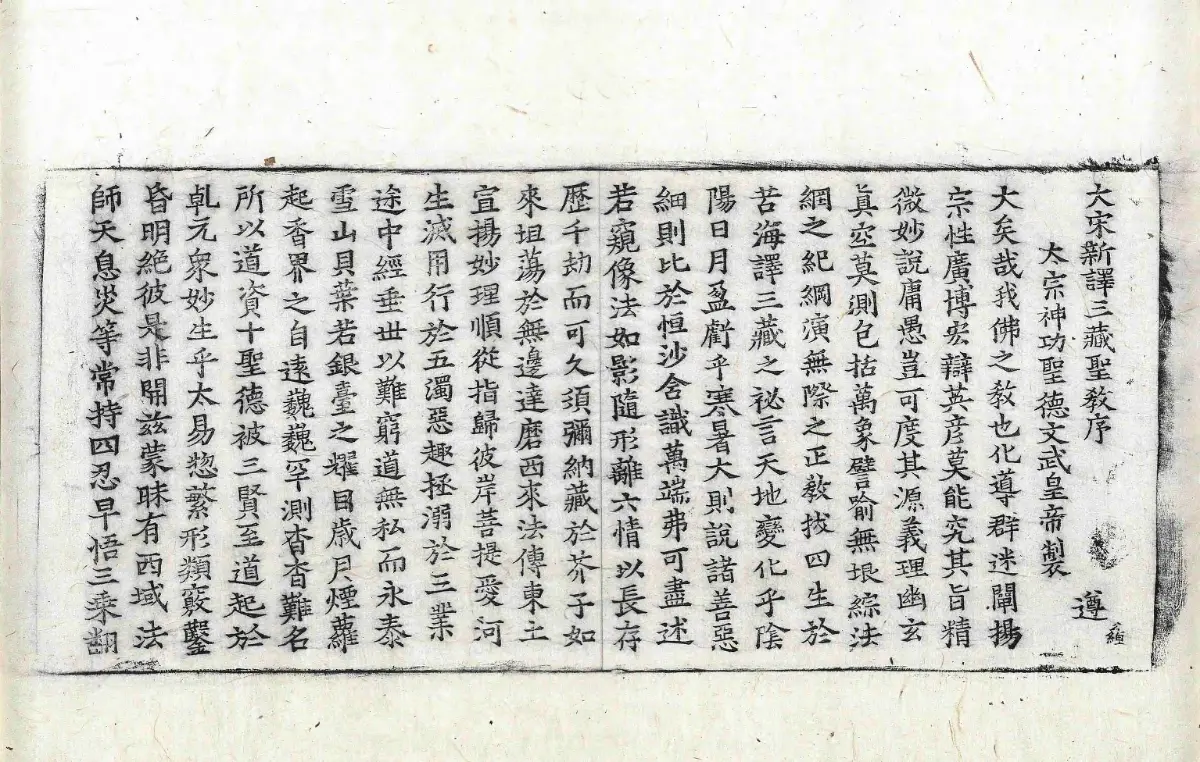 大宋新譯三藏聖敎序
遵
太宗神功聖德文武皇帝製
大矣哉我佛之敎也化導群迷闡揚
宗性廣博宏辯英彦莫能究其旨精
微妙說庸愚豈可度其源義理幽玄
眞空莫測包括萬象譬喻無垠綜法
網之紀綱演無際之正敎拔四生於
苦海譯三藏之祕言天地變化乎陰
陽日月盈虧乎寒暑大則說諸善惡
細則比於恒沙含識萬端弗可盡述
若窺像法如影隨形離六情以長存
歷千劫而可久須彌納藏於芥子如
來坦蕩於無邊達磨西來法傳東土
宣揚妙理順從指歸彼岸菩提愛河
生滅用行於五濁惡趣拯溺於三業
途中經垂世以難窮道無私而永泰
雪山貝葉若銀臺之耀目歲月煙蘿
起香界之自遠巍巍罕測杳杳難名
所以道資十聖德被三賢至道起於
乹元衆妙生乎太易惣繁形類竅鑿
昏明絶彼是非開兹蒙昧有西域法
師天息災等常持四忍早悟三乘翻